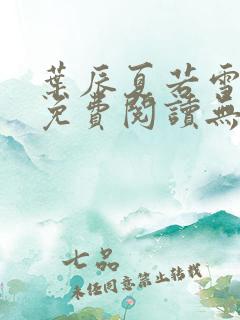 葉辰夏若雪
免費閱讀無
七品
未经同意禁止转载